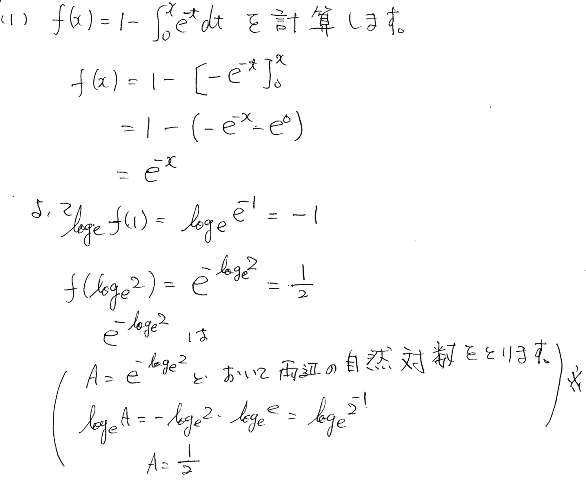 (1) f(x) = 1 - ∫₀ˣ e⁻ᵗ dt を計算します。
f(x) = 1 - [-e⁻ᵗ]₀ˣ
= 1 - (-e⁻ˣ - e⁰)
= e⁻ˣ
よって logₑ f(1) = logₑ e⁻¹ = -1
f(logₑ2) = e^{-logₑ2} = 1/2
e^{-logₑ2} は
A = e^{-logₑ2} とおいて両辺の自然対数をとります。
logₑA = -logₑ2・logₑe = logₑ2⁻¹ ※
A = 1/2